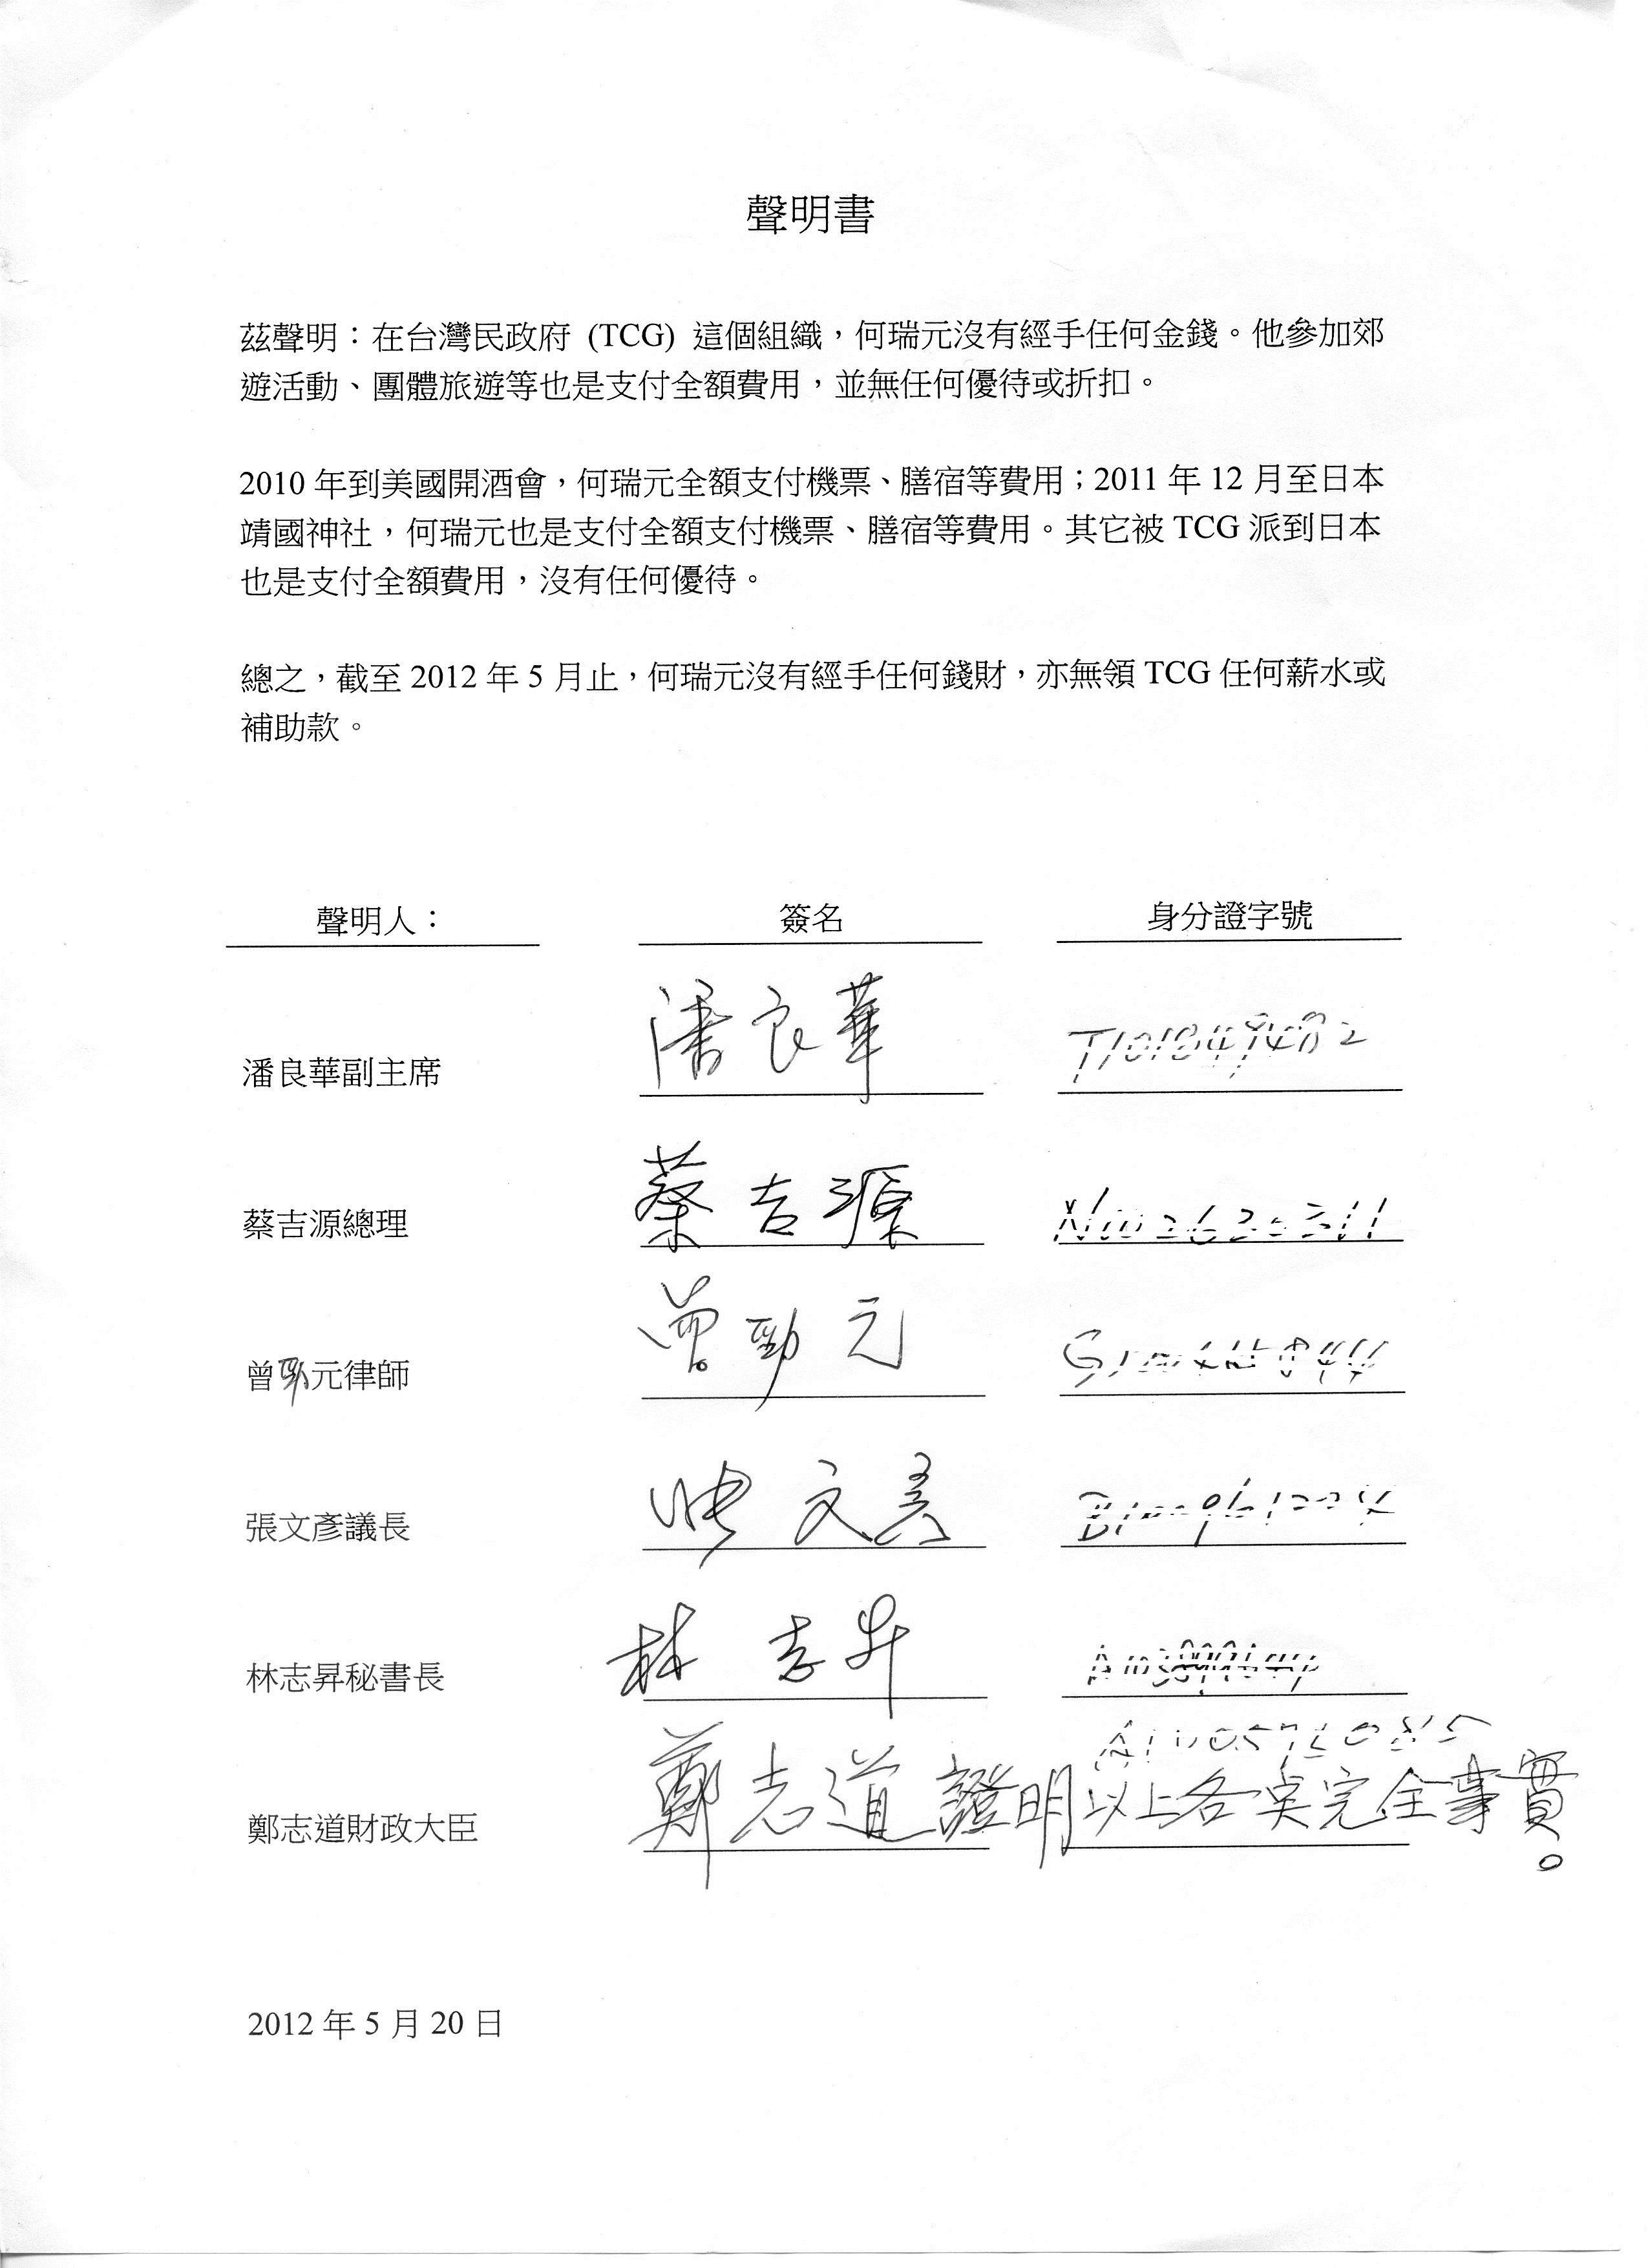 聲明書
茲聲明：在台灣民政府 (TCG) 這個組織，何瑞元沒有經手任何金錢。他參加郊
遊活動、團體旅遊等也是支付全額費用，並無任何優待或折扣。
2010 年到美國開酒會，何瑞元全額支付機票、膳宿等費用；2011 年 12 月至日本
靖國神社，何瑞元也是支付全額支付機票、膳宿等費用。其它被 TCG 派到日本
也是支付全額費用，沒有任何優待。
總之，截至 2012 年 5 月止，何瑞元沒有經手任何錢財，亦無領 TCG 任何薪水或
補助款。
聲明人： 簽名 身分證字號
潘良華副主席 潘良華
蔡吉源總理 蔡吉源
曾勁元律師 曾勁元
張文彥議長 張文彥
林志昇秘書長 林志昇
鄭志道財政大臣 鄭志道 證明以上各点完全事實。
2012 年 5 月 20 日